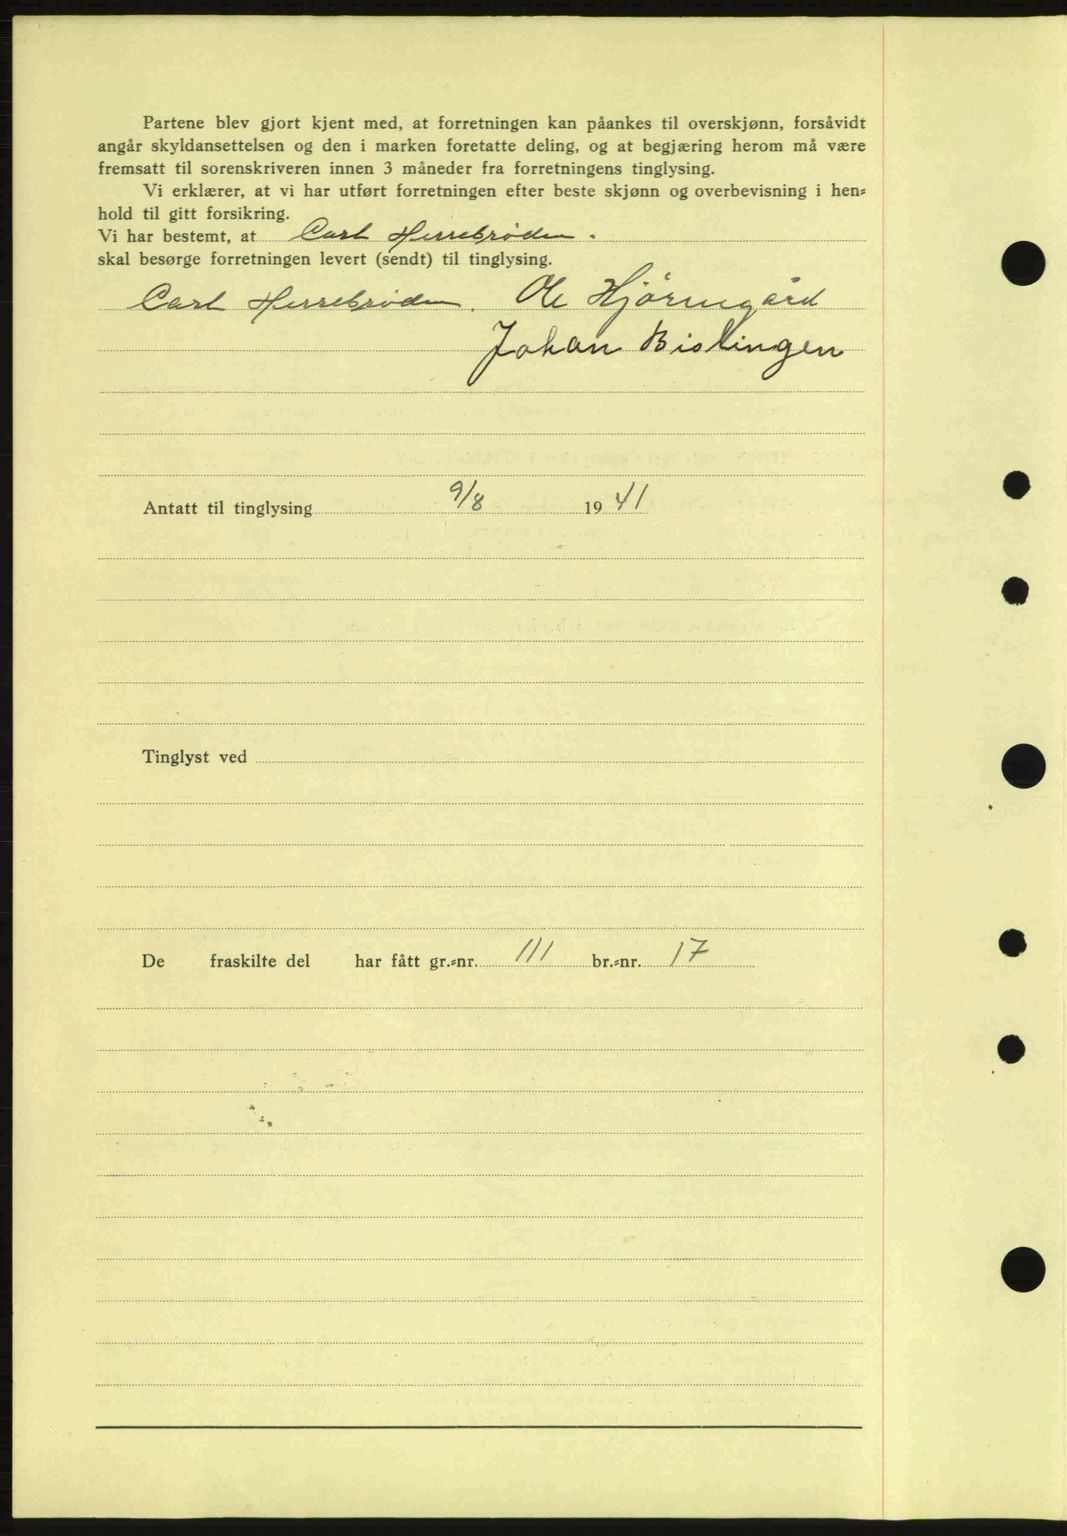 Partene blev gjort kjent med, at forretningen kan påankes til overskjønn, forsåvidt
angår skyldansettelsen og den i marken foretatte deling, og at begjæring herom må være
fremsatt til sorenskriveren innen 3 måneder fra forretningens tinglysing.
Vi erklærer, at vi har utført forretningen efter beste skjønn og overbevisning i hen-
hold til gitt forsikring.
Vi har bestemt, at Carl Herrebrøden.
skal besørge forretningen levert (sendt) til tinglysing.
Carl Herrebrøden. Ole Hjörungård
Johan Bislingen
Antatt til tinglysing 9/8 1941
Tinglyst ved
De fraskilte del har fått gr.-nr. 111 br.-nr. 17